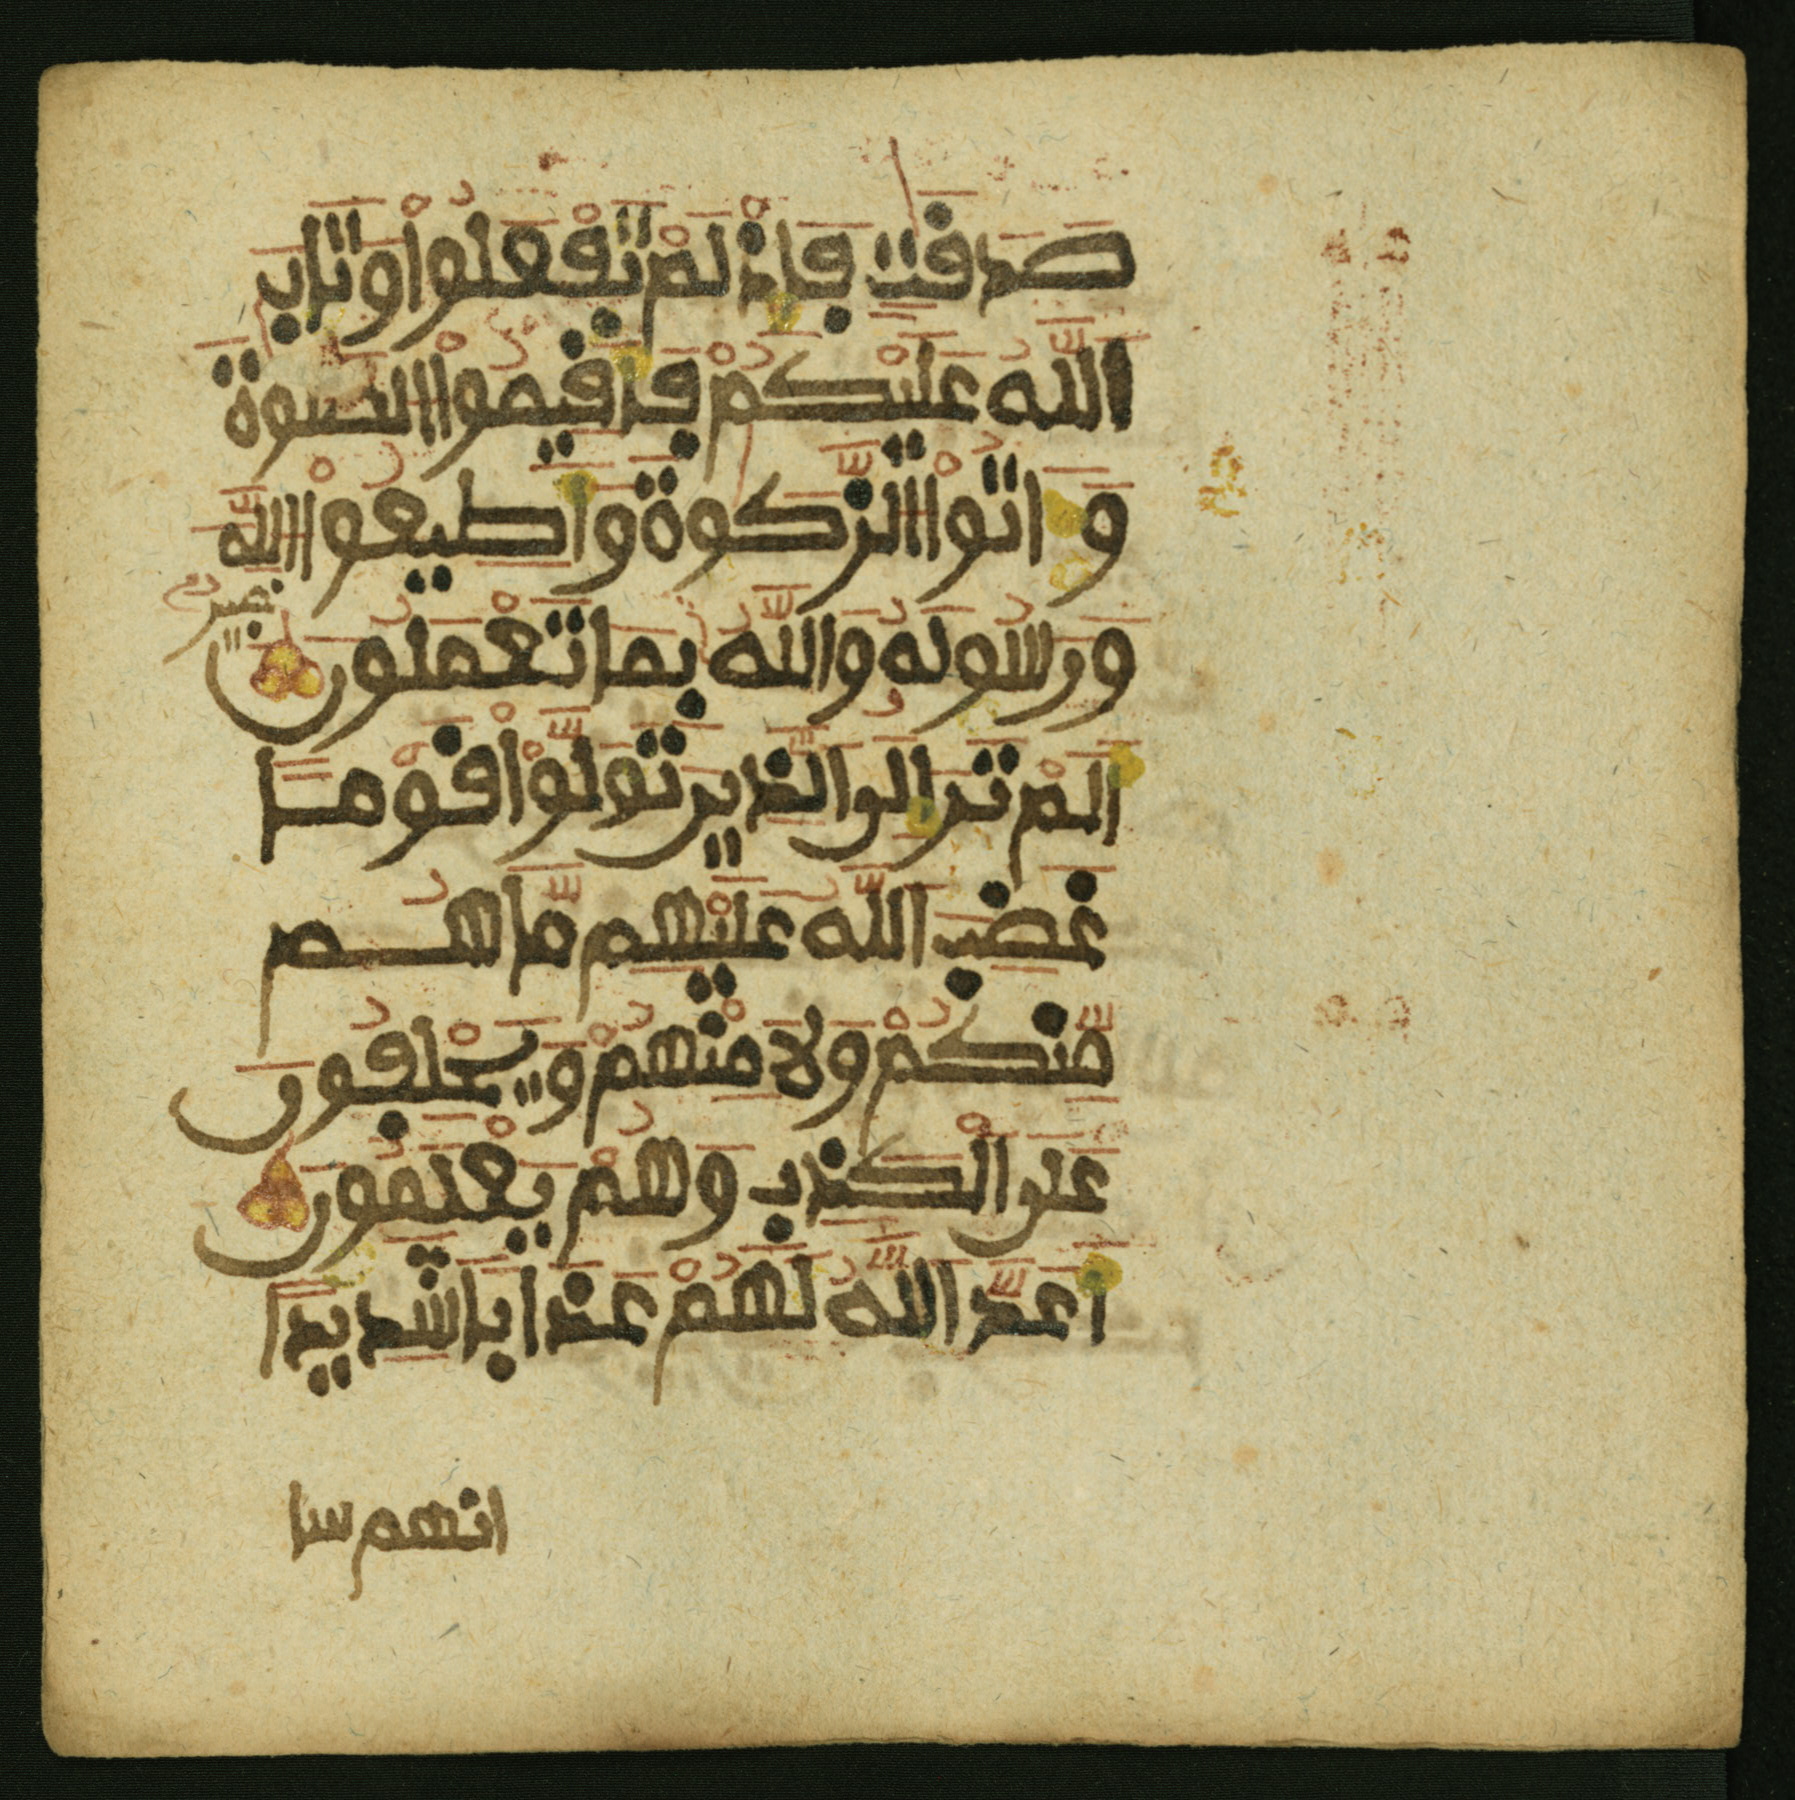 صدقت فإذ لم تفعلوا وتاب
الله عليكم فأقيموا الصلوة
و اتوا الزكوة وأطيعوا الله
خبير
ورسوله والله بما تعملون
ألم تر إلى الذين تولوا قوما
غضب الله عليهم ما هم
منكم ولا منهم ويحلفون
على الكذب وهم يعلمون
أعد الله لهم عذابا شديدا
انهم سا